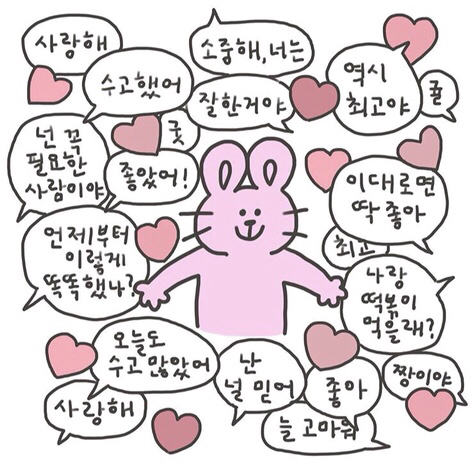 사랑해
소중해, 너는
수고했어
잘한거야
역시
최고야
굳
넌 꼭
필요한
사람이야
좋았어!
이대로면
딱 좋아
언제부터
이렇게
똑똑했나?
최고
나랑
떡볶이
먹을래?
오늘도
수고 많았어
난
널 믿어
좋아
짱이야
사랑해
늘 고마워